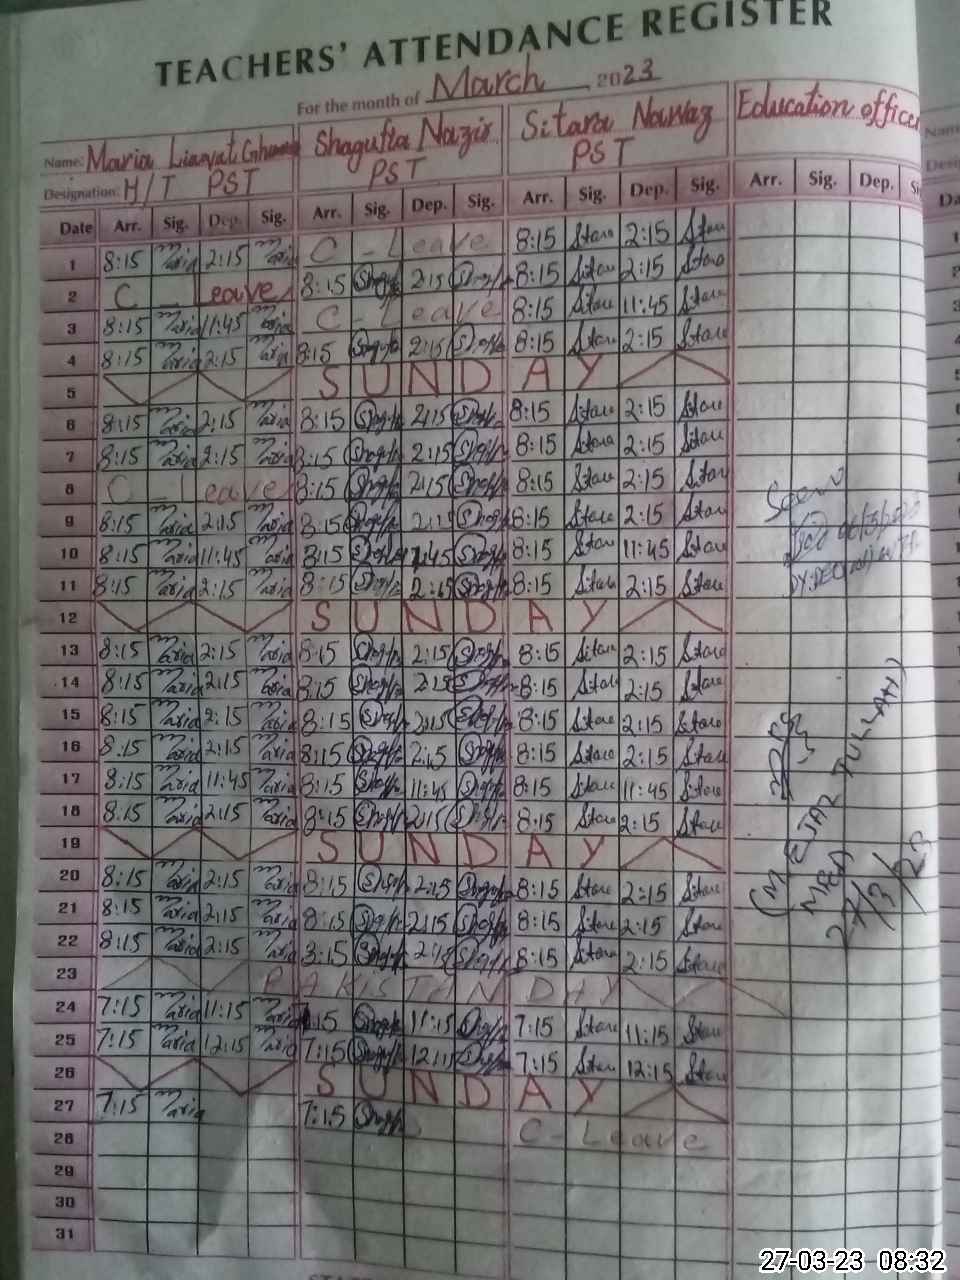 TEACHERS' ATTENDANCE REGISTER
For the month of March 2023
Name: Maria Liaqat Shagufta Nazir Sitara Nawaz Education officer
Designation: H/T PST PST PST
Date Arr. Sig. Dep. Sig. Arr. Sig. Dep. Sig. Arr. Sig. Dep. Sig. Arr. Sig. Dep.
1 8:15 Maria 2:15 Maria C-Leave 8:15 Sitara 2:15 Sitara
2 C-Leave 8:15 Shagufta 2:15 Shagufta 8:15 Sitara 2:15 Sitara
3 8:15 Maria 11:45 Maria C-Leave 8:15 Sitara 11:45 Sitara
4 8:15 Maria 2:15 Maria 8:15 Shagufta 2:15 Shagufta 8:15 Sitara 2:15 Sitara
5 SUNDAY
6 8:15 Maria 2:15 Maria 8:15 Shagufta 2:15 Shagufta 8:15 Sitara 2:15 Sitara
7 8:15 Maria 2:15 Maria 8:15 Shagufta 2:15 Shagufta 8:15 Sitara 2:15 Sitara
8 C-Leave 8:15 Shagufta 2:15 Shagufta 8:15 Sitara 2:15 Sitara
9 8:15 Maria 2:15 Maria 8:15 Shagufta 2:15 Shagufta 8:15 Sitara 2:15 Sitara
10 8:15 Maria 11:45 Maria 8:15 Shagufta 11:45 Shagufta 8:15 Sitara 11:45 Sitara
11 8:15 Maria 2:15 Maria 8:15 Shagufta 2:15 Shagufta 8:15 Sitara 2:15 Sitara
12 SUNDAY
13 8:15 Maria 2:15 Maria 8:15 Shagufta 2:15 Shagufta 8:15 Sitara 2:15 Sitara
14 8:15 Maria 2:15 Maria 8:15 Shagufta 2:15 Shagufta 8:15 Sitara 2:15 Sitara
15 8:15 Maria 2:15 Maria 8:15 Shagufta 2:15 Shagufta 8:15 Sitara 2:15 Sitara
16 8:15 Maria 2:15 Maria 8:15 Shagufta 2:15 Shagufta 8:15 Sitara 2:15 Sitara
17 8:15 Maria 11:45 Maria 8:15 Shagufta 11:45 Shagufta 8:15 Sitara 11:45 Sitara
18 8:15 Maria 2:15 Maria 8:15 Shagufta 2:15 Shagufta 8:15 Sitara 2:15 Sitara
19 SUNDAY
20 8:15 Maria 2:15 Maria 8:15 Shagufta 2:15 Shagufta 8:15 Sitara 2:15 Sitara
21 8:15 Maria 2:15 Maria 8:15 Shagufta 2:15 Shagufta 8:15 Sitara 2:15 Sitara
22 8:15 Maria 2:15 Maria 8:15 Shagufta 2:15 Shagufta 8:15 Sitara 2:15 Sitara
23 PAKISTAN DAY
24 7:15 Maria 11:15 Maria 7:15 Shagufta 11:15 Shagufta 7:15 Sitara 11:15 Sitara
25 7:15 Maria 12:15 Maria 7:15 Shagufta 12:15 Shagufta 7:15 Sitara 12:15 Sitara
26 SUNDAY
27 7:15 Maria 7:15 Shagufta C-Leave
28
29
30
31
Seen
MEA
27/3/23
27-03-23 08:32